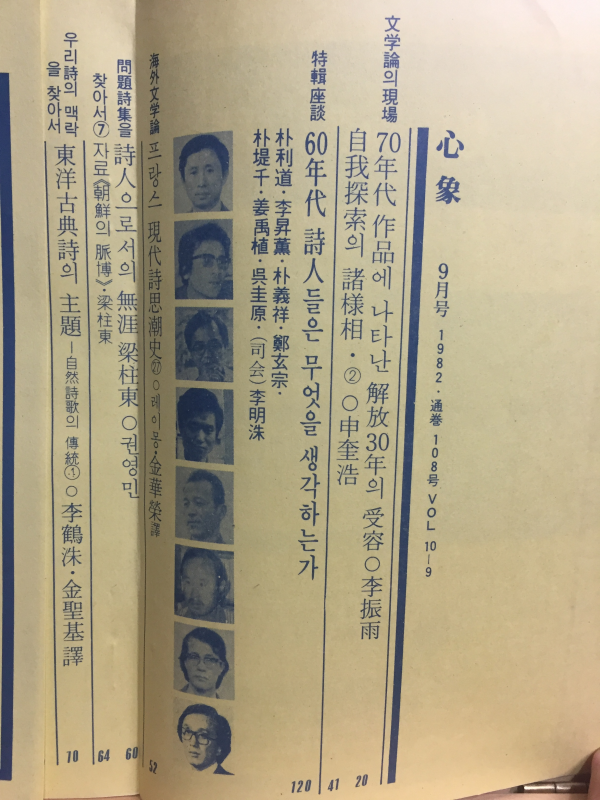 心象
9月号 1982·通巻 108号 VOL 10-9
文学論의 現場
70年代 作品에 나타난 解放30年의 受容○李振雨
20
自我探索의 諸樣相·②○申奎浩
41
特輯座談
60年代 詩人들은 무엇을 생각하는가
120
朴利道·李昇薰·朴義祥·鄭玄宗·
朴堤千·姜禹植·吳圭原·(司会)李明洙
海外文学論
프랑스 現代詩思潮史㉗○레이몽·金華榮譯
52
問題詩集을
찾아서⑦
詩人으로서의 無涯 梁柱東○권영민
60
자료《朝鮮의 脈博》·梁柱東
64
우리詩의 맥락
을 찾아서
東洋古典詩의 主題—自然詩歌의 傳統①○李鶴洙·金聖基譯
70